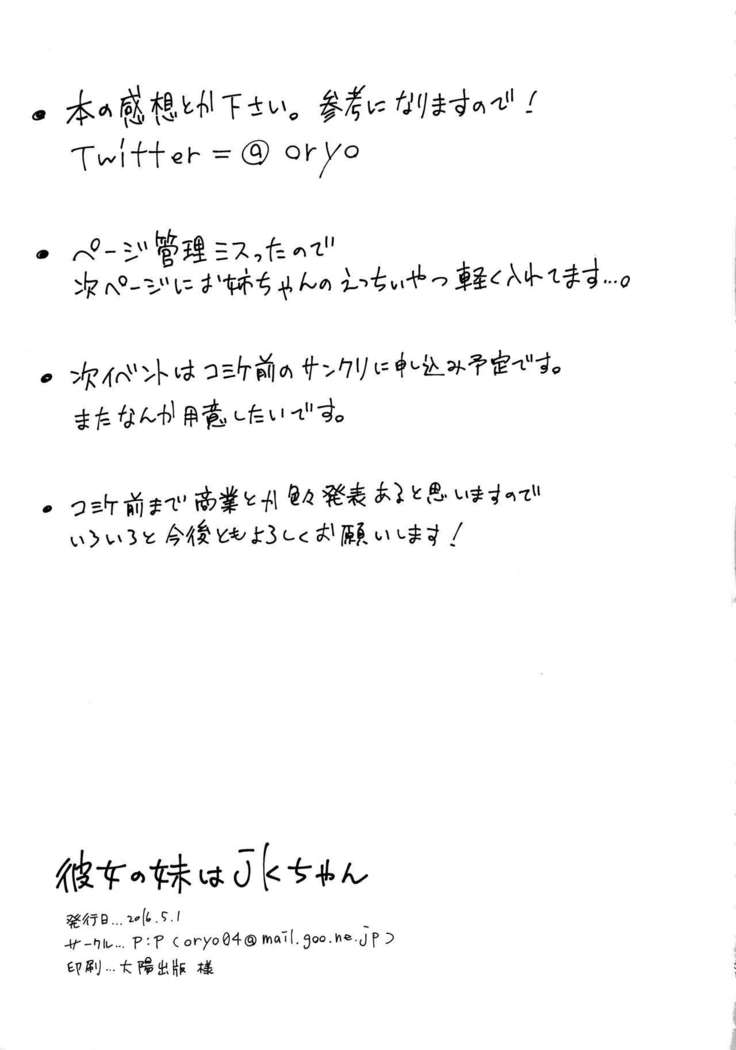 • 本の感想とか下さい。参考になりますので！
Twitter=@oryo
• ページ管理ミスったので
次ページにお姉ちゃんのえっちぃやつ軽く入れてます…。
• 次イベントはコミケ前のサンクリに申し込み予定です。
またなんか用意したいです。
• コミケ前まで商業とか色々発表あると思いますので
いろいろと今後ともよろしくお願いします！
彼女の妹はJKちゃん
発行日…2016.5.1
サークル…P:P(oryo04@mail.goo.ne.jp)
印刷…太陽出版 様